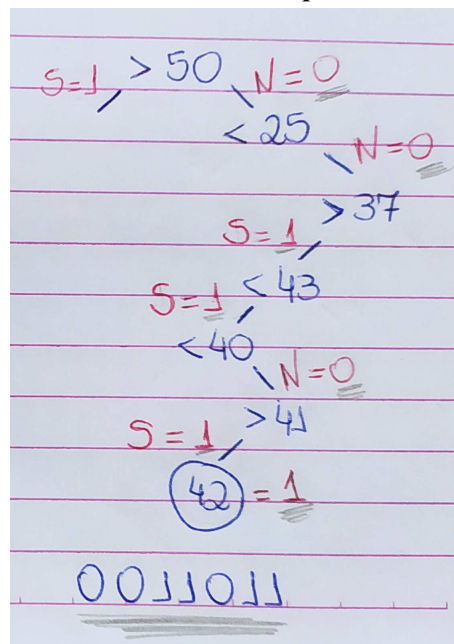 S=1 > 50 N=0
< 25 N=0
> 37
S=1
S=1 < 43
< 40
N=0
S=1 > 41
42 = 1
0011011